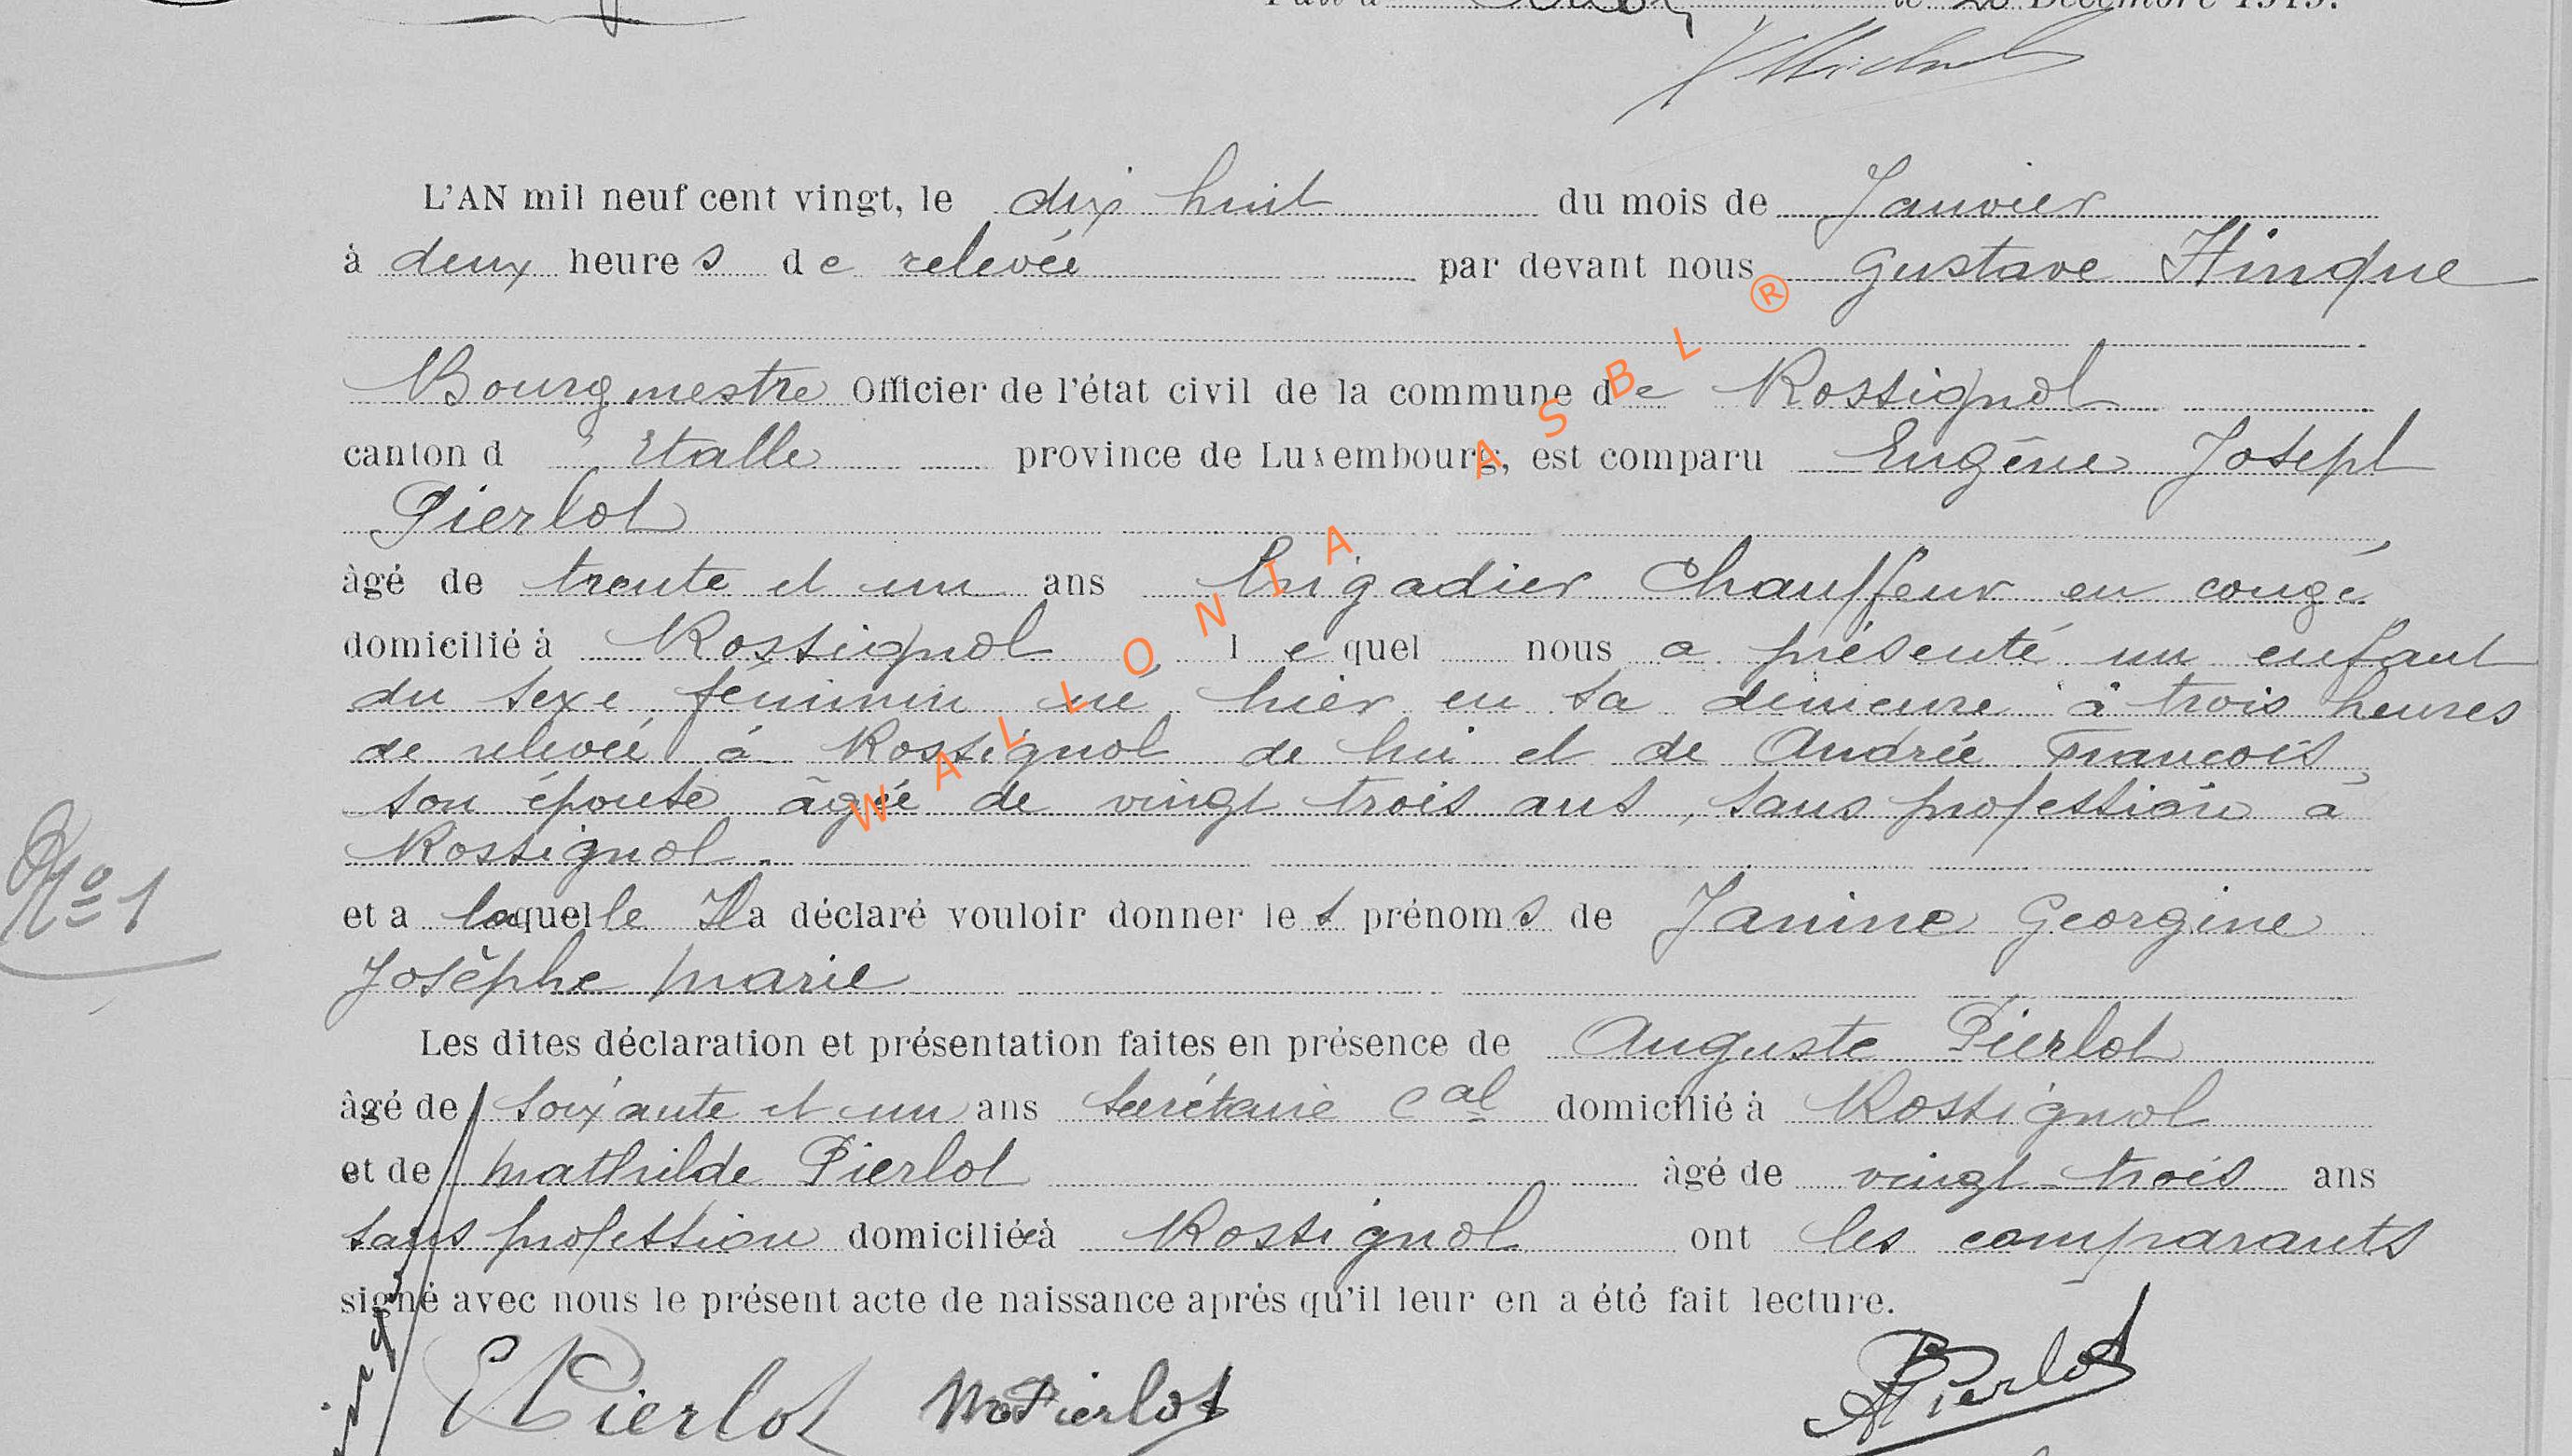 le 20 Décembre 1919.
L'AN mil neuf cent vingt, le dix huit du mois de Janvier
à deux heures de relevée par devant nous Gustave Hinque
Bourgmestre Officier de l'état civil de la commune de Rossignol
canton d'Etalle province de Luxembourg, est comparu Eugène Joseph
Pierlot
âgé de trente et un ans brigadier chauffeur en congé
domicilié à Rossignol lequel nous a présenté un enfant
du sexe féminin né hier en sa demeure à trois heures
de relevée à Rossignol de lui et de Andrée François,
son épouse âgée de vingt trois ans, sans profession à
Rossignol.
No 1
et a laquelle Il a déclaré vouloir donner les prénoms de Janine Georgine
Josèphe Marie
Les dites déclaration et présentation faites en présence de Auguste Pierlot
âgé de soixante et un ans secrétaire cal domicilié à Rossignol
et de Mathilde Pierlot âgé de vingt-trois ans
sans profession domiciliée à Rossignol ont les comparants
signé avec nous le présent acte de naissance après qu'il leur en a été fait lecture.
E Pierlot M Pierlot A Pierlot
WALLONIA ASBL ®